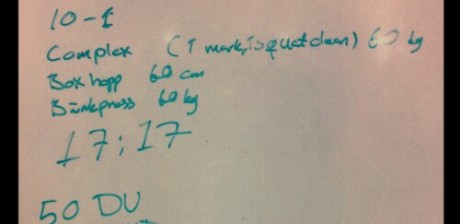 10-1
Complex (1 mark, 1 squat clean) 60 kg
Box hopp 60 cm
Bänkpress 60 kg
17:17
50 DU